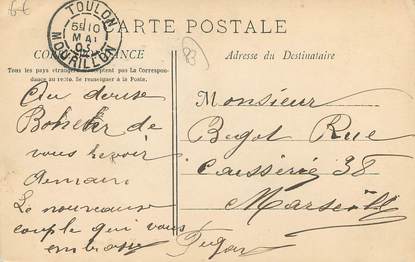 6€
TOULON
5E 10
MAI
MOURILLON
CARTE POSTALE
83
CORRESPONDANCE
Tous les pays étrangers n'acceptent pas la Correspon-
dance au recto. Se renseigner à la Poste.
Adresse du Destinataire
Au
de
vous revoir
demain
Le nouveau
couple qui vous
embrasse
Monsieur
Bigot Rue
Caisserie 38
Marseille